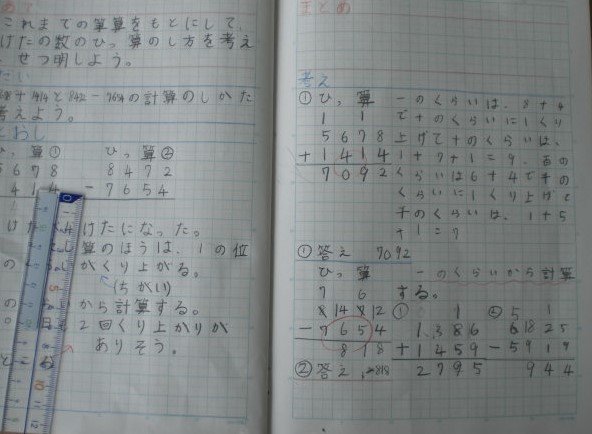 めて
これまでの筆算をもとにして、
けたの数のひっ算のし方を考え
せつ明しよう。
たい
の計算のしかた
考えよう。
とおし
ひっ算① ひっ算②
5678 8472
414 -7654
けたになった。
算のほうは、1の位
がくり上がる。
(ちがい)
から計算する。
2回くり上がりが
ありそう。
まとめ
考え
①ひっ算
1 1
5678
+1414
7092
一のくらいは、8+4
で十のくらいに1くり
上げて十のくらいは、
1+7+1=9、
くらいは6+4で千の
くらいに1くり上げて
千のくらいは、1+5
+1=7
①答え 7092
ひっ算
7 6
8 14 8 12
-7654
818
②答え 818
一のくらいから計算
する。
①
1
1386
+1459
2795
②
5 1
6825
-5919
944